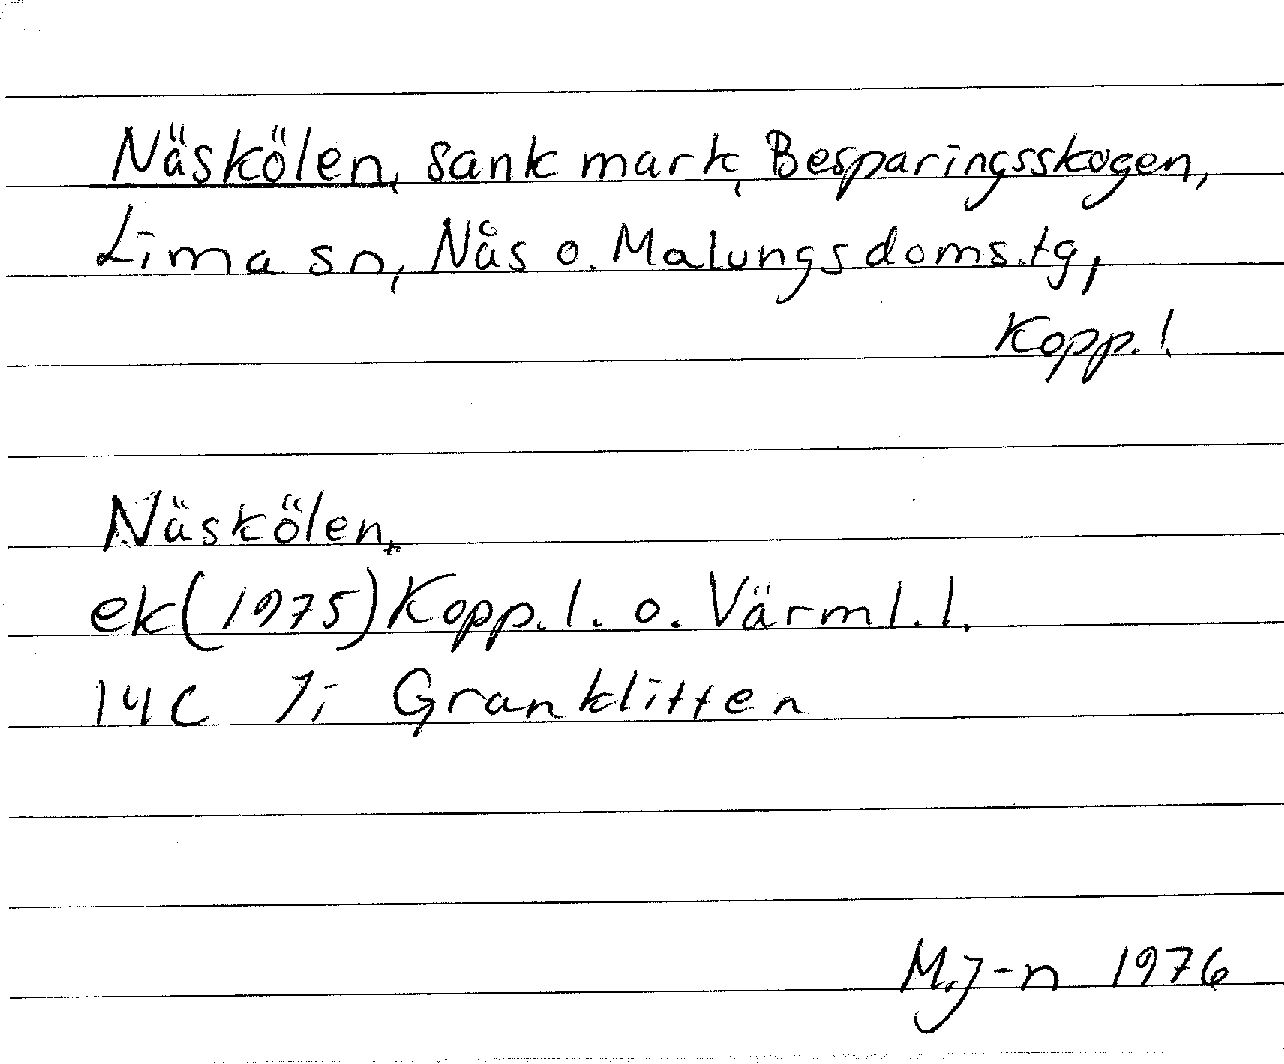 Näskölen, sank mark, Besparingsskogen,
Lima sn, Nås o. Malungs doms.tg,
Kopp.l.
Näskölen,
ek (1975) Kopp.l. o. Värml.l.
14C 7i Granklitten
M.J-n 1976